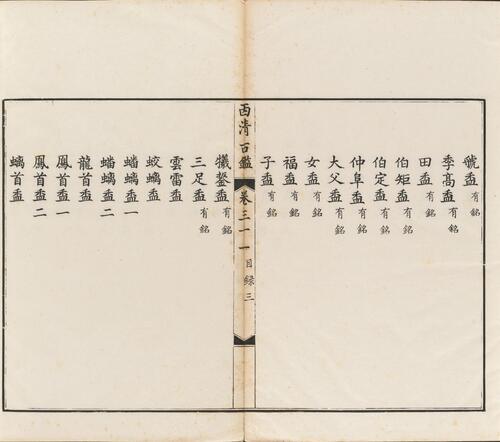 虢盉有銘
季高盉有銘
田盉有銘
伯矩盉有銘
伯定盉有銘
仲阜盉有銘
大父盉有銘
女盉有銘
福盉有銘
子盉有銘
西清古鑑
卷三十一
目録
三
犧鋬盉有銘
三足盉有銘
雲雷盉
蛟螭盉
蟠螭盉一
蟠螭盉二
龍首盉
鳳首盉一
鳳首盉二
螭首盉